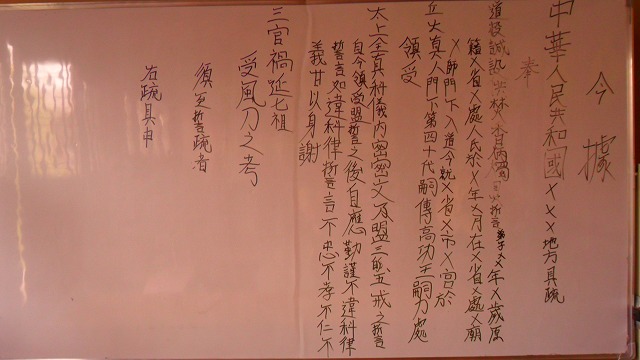 今據
中華人民共和國×××地方具疏
奉
道投誠 焚香 誓 弟子××年×歲原
籍×省×處人民於×年×月在×省×處×廟
×師門下入道今就×省×市×宮於
丘大真人門下第四十代嗣傳高功王嗣 處
領受
太上全真科儀內密密文及盟三 五戒之誓
自今領受盟誓之後自應勤謹不違科律
誓言如違科律誓言不忠不孝不仁不
義甘以身謝
三官禍延七祖
受風刀之考
須至誓疏者
右疏具申